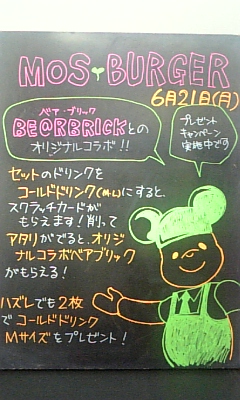 MOS BURGER
6月21日(月)
ベア・ブリック
BE@RBRICKとの
オリジナルコラボ!!
プレゼント
キャンペーン
実施中です
セットのドリンクを
コールドドリンク(Mのみ)にすると、
スクラッチカードが
もらえます!削って
アタリがでると、オリジ
ナルコラボベアブリック
がもらえる!
ハズレでも2枚
でコールドドリンク
Mサイズをプレゼント!